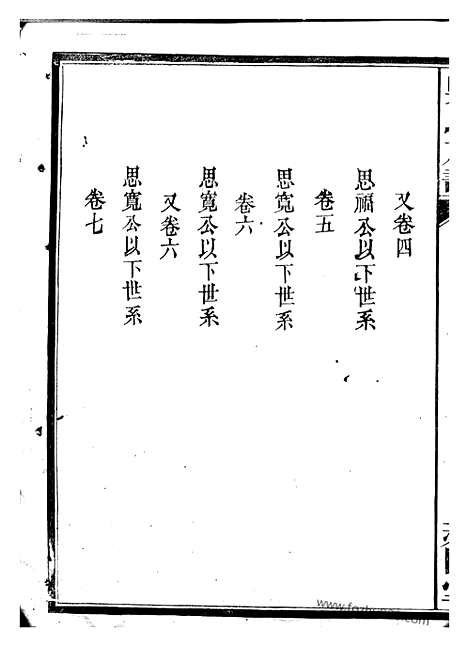 又卷四
思福公以下世系
卷五
思寬公以下世系
卷六
思寬公以下世系
又卷六
思寬公以下世系
卷七